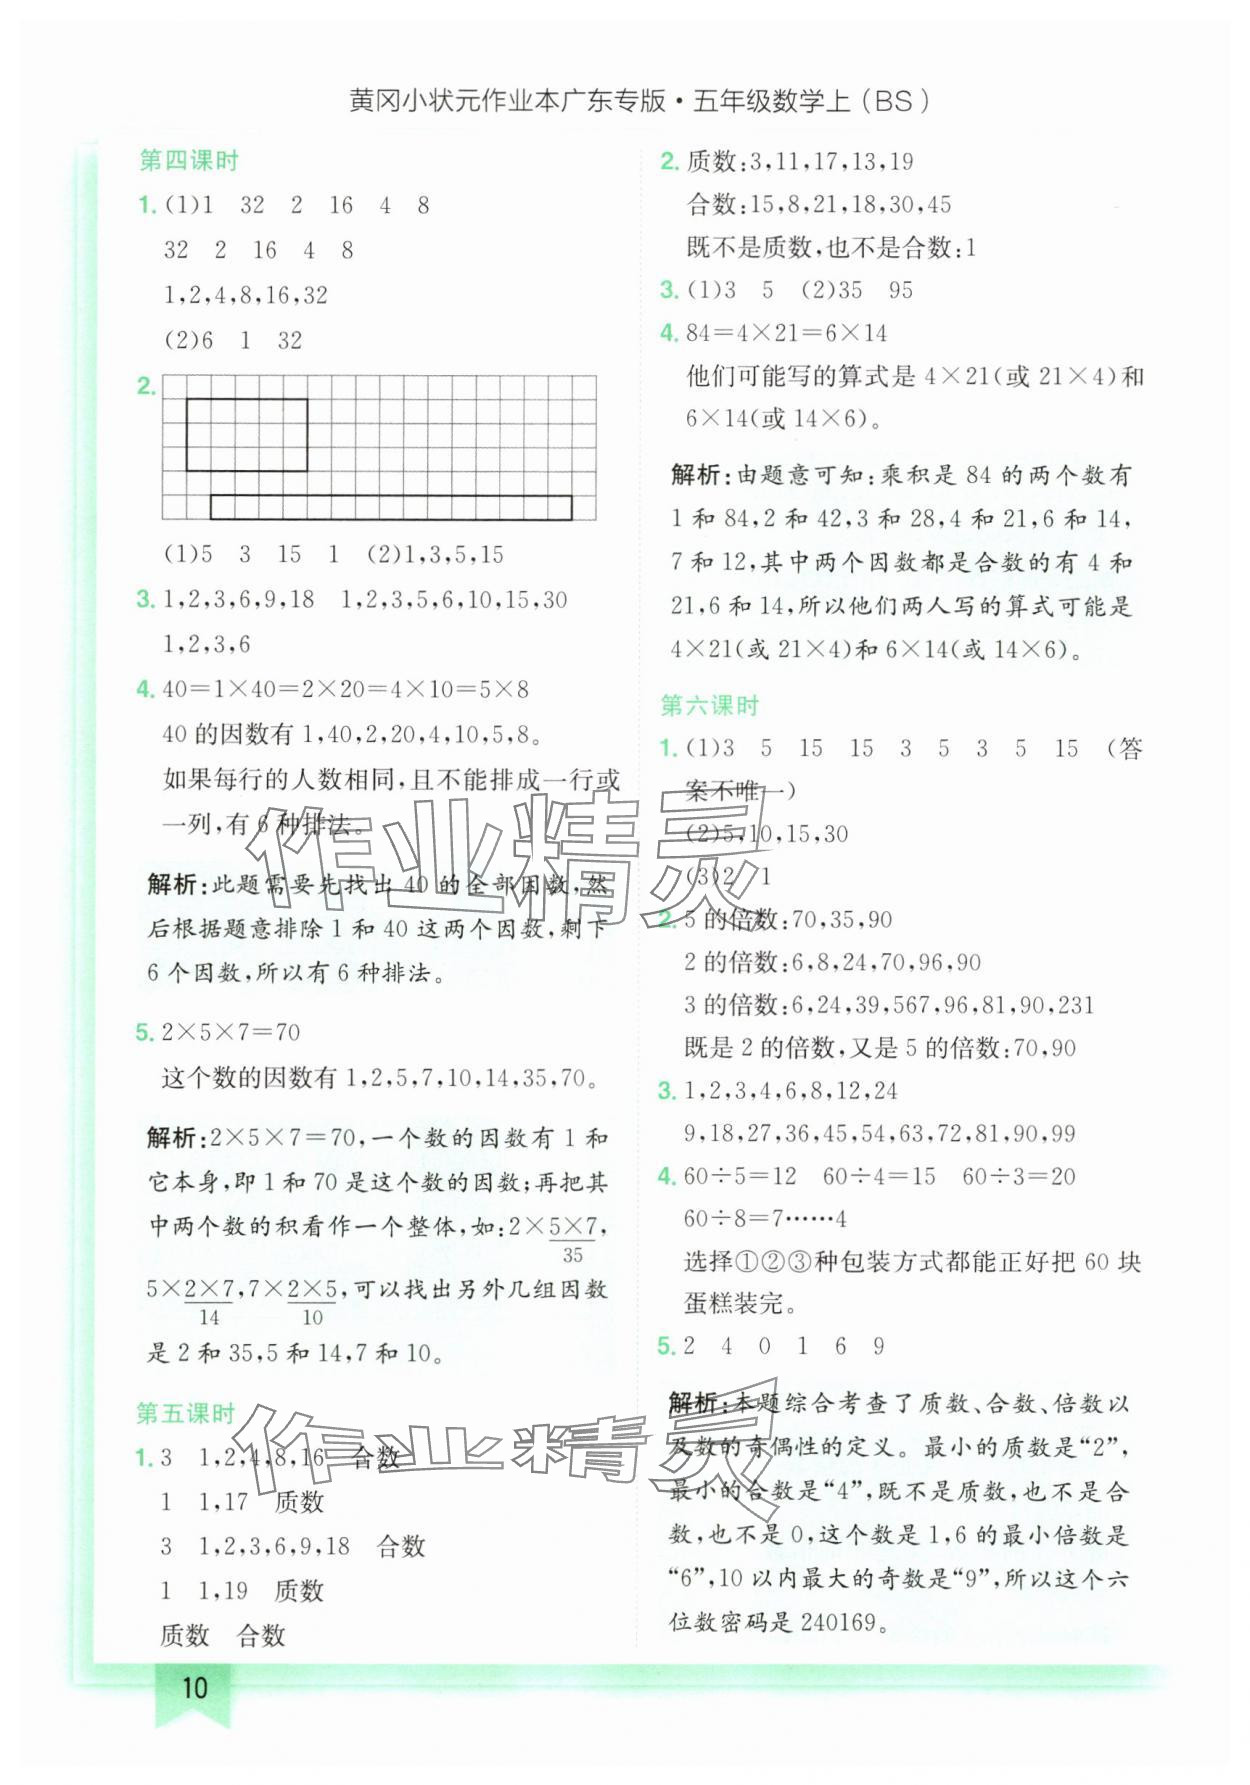 黄冈小状元作业本广东专版·五年级数学上(BS)
第四课时
1.(1)1 32 2 16 4 8
32 2 16 4 8
1,2,4,8,16,32
(2)6 1 32
2.
(1)5 3 15 1 (2)1,3,5,15
3.1,2,3,6,9,18 1,2,3,5,6,10,15,30
1,2,3,6
4.40=1×40=2×20=4×10=5×8
40的因数有1,40,2,20,4,10,5,8。
如果每行的人数相同,且不能排成一行或
一列,有6种排法。
解析:此题需要先找出40的全部因数,然
后根据题意排除1和40这两个因数,剩下
6个因数,所以有6种排法。
5.2×5×7=70
这个数的因数有1,2,5,7,10,14,35,70。
解析:2×5×7=70,一个数的因数有1和
它本身,即1和70是这个数的因数;再把其
中两个数的积看作一个整体,如:2×5×7,
35
5×2×7,7×2×5,可以找出另外几组因数
14 10
是2和35,5和14,7和10。
第五课时
1.3 1,2,4,8,16 合数
1 1,17 质数
3 1,2,3,6,9,18 合数
1 1,19 质数
质数 合数
2.质数:3,11,17,13,19
合数:15,8,21,18,30,45
既不是质数,也不是合数:1
3.(1)3 5 (2)35 95
4.84=4×21=6×14
他们可能写的算式是4×21(或21×4)和
6×14(或14×6)。
解析:由题意可知:乘积是84的两个数有
1和84,2和42,3和28,4和21,6和14,
7和12,其中两个因数都是合数的有4和
21,6和14,所以他们两人写的算式可能是
4×21(或21×4)和6×14(或14×6)。
第六课时
1.(1)3 5 15 15 3 5 3 5 15 (答
案不唯一)
(2)5,10,15,30
(3)2 1
2.5的倍数:70,35,90
2的倍数:6,8,24,70,96,90
3的倍数:6,24,39,567,96,81,90,231
既是2的倍数,又是5的倍数:70,90
3.1,2,3,4,6,8,12,24
9,18,27,36,45,54,63,72,81,90,99
4.60÷5=12 60÷4=15 60÷3=20
60÷8=7……4
选择①②③种包装方式都能正好把60块
蛋糕装完。
5.2 4 0 1 6 9
解析:本题综合考查了质数、合数、倍数以
及数的奇偶性的定义。最小的质数是“2”,
最小的合数是“4”,既不是质数,也不是合
数,也不是0,这个数是1,6的最小倍数是
“6”,10以内最大的奇数是“9”,所以这个六
位数密码是240169。
作业精灵
作业精灵
10